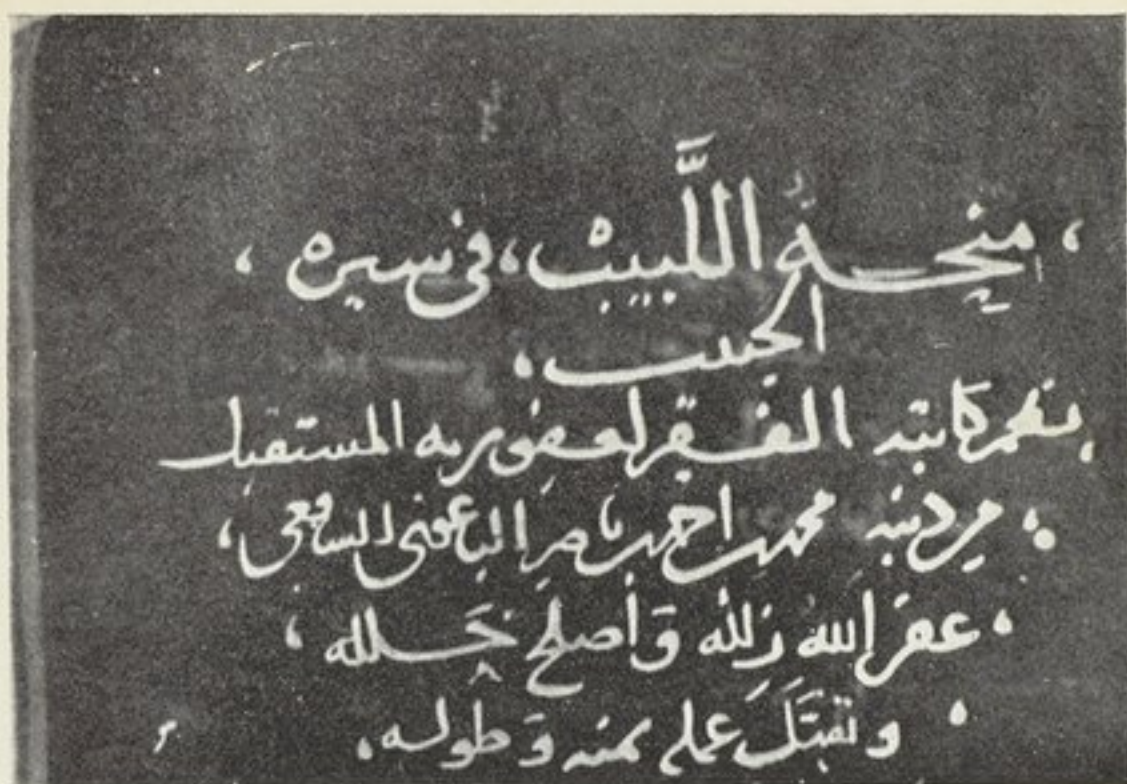 منحةُ اللَّبيب، في سيره
الحبيب.
نظم كاتبه الفقير لعفو ربه المستقيل
من ذنبه محمد بن احمد بن ناصر الباعوني الشافعي
غفر الله زلله وَأصلح خَلله
وتقبَّلَ عمله بمنه وَطوله.